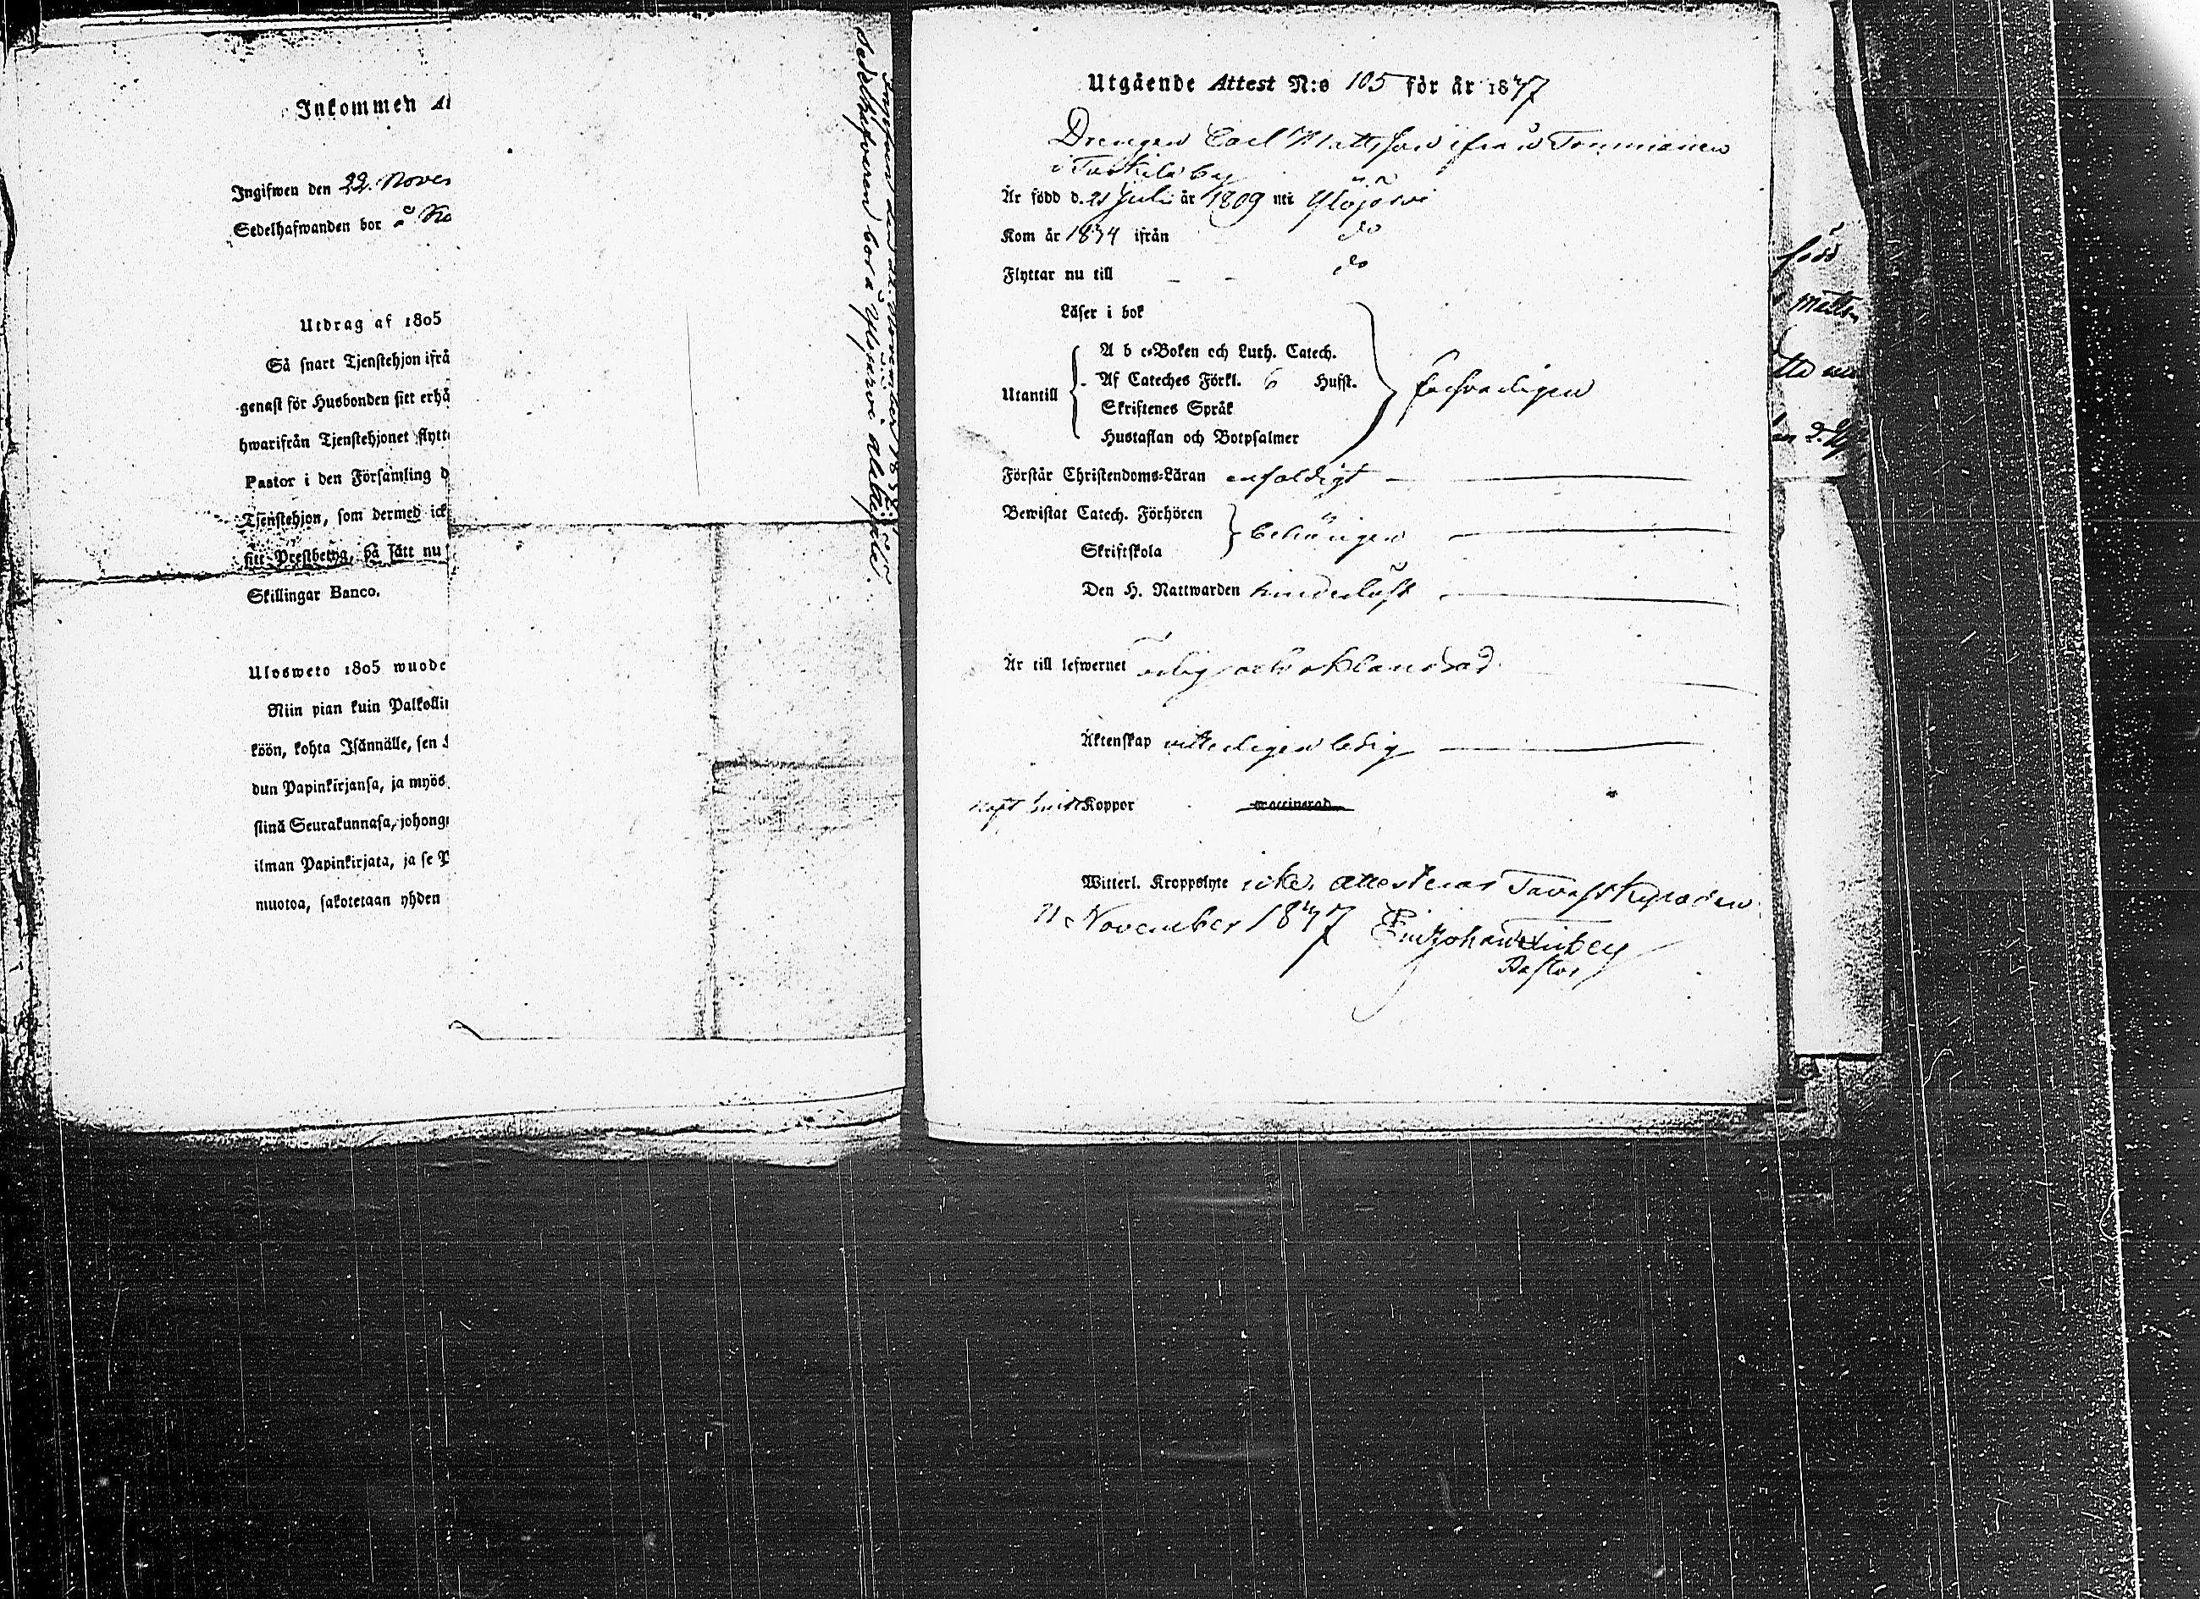 Inkommen At
Ingifwen den 22. Novem
Sedelhafwanden bor å Ko
Utdrag af 1805
Så snart Tjenstehjon ifrå
genast för Husbonden sitt erhå
hwarifrån Tjenstehjonet flytt
Pastor i den Församling d
Tjenstehjon, som dermed ick
sitt Prestbetyg, på sätt nu
Skillingar Banco.
Ulosweto 1805 wuode
Niin pian kuin Palkollin
köön, kohta Isännälle, sen
dun Papinkirjansa, ja myös
slinä Seurakunnasa, johong
ilman Papinkirjata, ja se P
muotoa, sakotetaan yhden
Ingifven den 21. November 18
Sedelhafvaren bor å Ylöjärvi
Utgående Attest N:o 105 för år 1847
Drengen Carl Mattsson ifrån Tommianen
i Tuokila by
Är född d. 21 Juli år 1809 uti Ylöjärvi
Kom år 1834 ifrån do
Flyttar nu till - - do
Läser i bok
A b c-Boken och Luth. Catech.
Utantill Af Cateches Förkl. 6 Hufst. försvarligen
Skriftenes Språk
Hustaflan och Botpsalmer
Förstår Christendoms-Läran enfaldigt
Bewistat Catech. Förhören
Skriftskola behörigen
Den H. Nattwarden hinderlöst
Är till lefwernet ärlig och oklandrad
Äktenskap vitterligen ledig
haft Koppor waccinerad
Witterl. Kroppslyte icke, attesteras Tavastkyro den
21 November 1847
Pastor
född
Matts